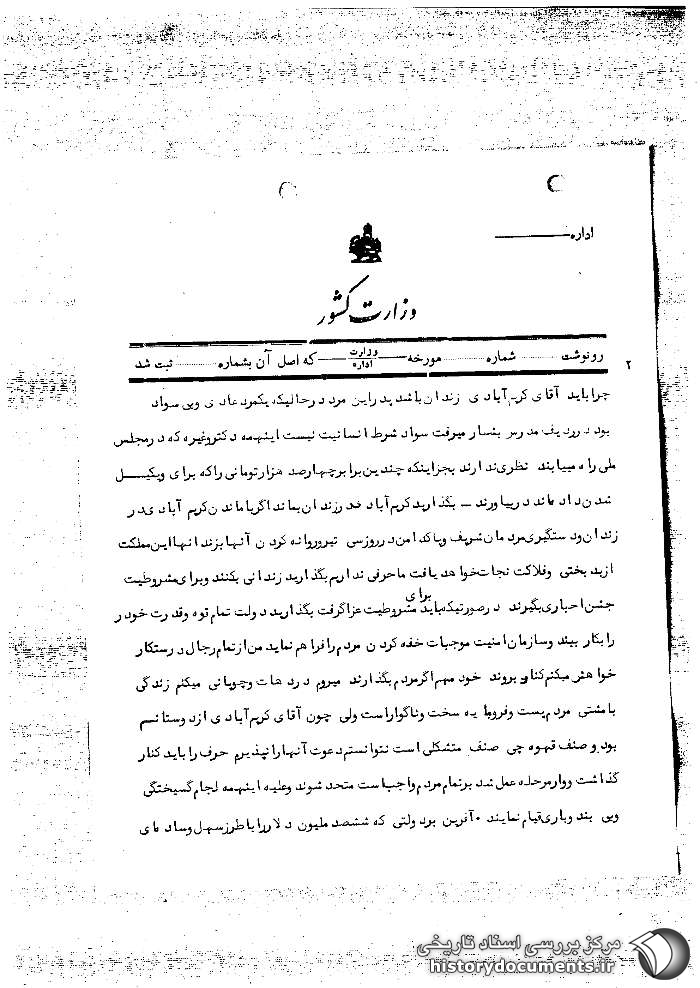 اداره
وزارت کشور
رونوشت شماره مورخه وزارت اداره که اصل آن بشماره ثبت شد
۲
چرا باید آقای کریم آبادی زندان باشد پدر این مرد در حالیکه یکمرد عادی و بی سواد
بود در ردیف مدرس بشمار میرفت سواد شرط انسانیت نیست اینهمه دکتر و غیره که در مجلس
ملی راه مییابند نظری ندارند بجز اینکه چندین برابر چهارصد هزار تومانی را که برای وکیل
شدن داده اند در بیاورند – بگذارید کریم آبادی در زندان بماند اگر با ماندن کریم آبادی در
زندان و دستگیری مردمان شریف و پاکدامن در روز سی تیر و روانه کردن آنها بزندانها این مملکت
از بدبختی و فلاکت نجات خواهد یافت ما حرفی نداریم بگذارید زندانی بکنند و برای مشروطیت
جشن اجباری بگیرند در صورتیکه باید برای مشروطیت عزا گرفت بگذارید دولت تمام قوه و قدرت خود را
را بکار ببند و سازمان امنیت موجبات خفه کردن مردم را فراهم نماید من از تمام رجال درستکار
خواهش میکنم کنار بروند خود مهم اگر مردم بگذارند میروم در دهات و چوپانی میکنم زندگی
با مشتی مردم پست و فرومایه سخت و ناگوار است ولی چون آقای کریم آبادی از دوستانم
بود و صنف قهوه چی صنف متشکلی است نتوانستم دعوت آنها را نپذیرم حرف را باید کنار
گذاشت و وارد مرحله عمل شد بر تمام مردم واجب است متحد شوند و علیه اینهمه لجام گسیختگی
و بی بند و باری قیام نمایند ۰ آفرین بر دولتی که ششصد ملیون دلار را با طرز سهل و ساده ای
مرکز بررسی اسناد تاریخی
historydocuments.ir